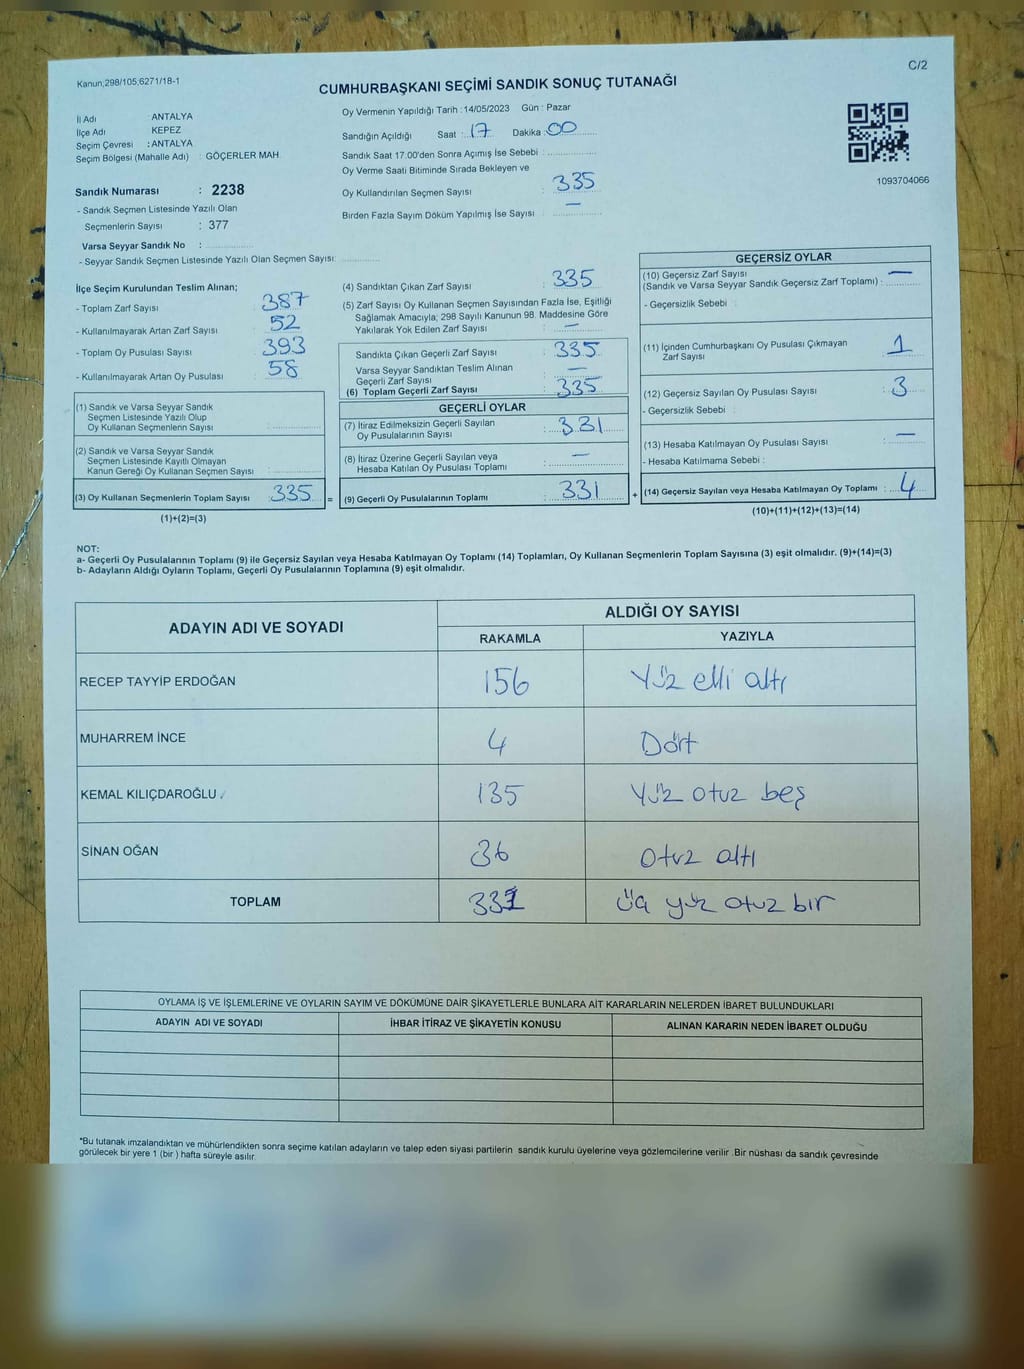 Kanun;298/105;6271/18-1
C/2
CUMHURBAŞKANI SEÇİMİ SANDIK SONUÇ TUTANAĞI
İl Adı : ANTALYA
İlçe Adı : KEPEZ
Seçim Çevresi : ANTALYA
Seçim Bölgesi (Mahalle Adı) : GÖÇERLER MAH.
Sandık Numarası : 2238
- Sandık Seçmen Listesinde Yazılı Olan
Seçmenlerin Sayısı : 377
Varsa Seyyar Sandık No :
- Seyyar Sandık Seçmen Listesinde Yazılı Olan Seçmen Sayısı:
Oy Vermenin Yapıldığı Tarih : 14/05/2023 Gün : Pazar
Sandığın Açıldığı Saat : 17 Dakika : 00
Sandık Saat 17.00'den Sonra Açımış İse Sebebi :
Oy Verme Saati Bitiminde Sırada Bekleyen ve
Oy Kullandırılan Seçmen Sayısı : 335
Birden Fazla Sayım Döküm Yapılmış İse Sayısı : —
1093704066
İlçe Seçim Kurulundan Teslim Alınan;
- Toplam Zarf Sayısı : 387
- Kullanılmayarak Artan Zarf Sayısı : 52
- Toplam Oy Pusulası Sayısı : 393
- Kullanılmayarak Artan Oy Pusulası : 58
(1) Sandık ve Varsa Seyyar Sandık
Seçmen Listesinde Yazılı Olup
Oy Kullanan Seçmenlerin Sayısı :
(2) Sandık ve Varsa Seyyar Sandık
Seçmen Listesinde Kayıtlı Olmayan
Kanun Gereği Oy Kullanan Seçmen Sayısı :
(3) Oy Kullanan Seçmenlerin Toplam Sayısı : 335 =
(1)+(2)=(3)
(4) Sandıktan Çıkan Zarf Sayısı : 335
(5) Zarf Sayısı Oy Kullanan Seçmen Sayısından Fazla İse, Eşitliği
Sağlamak Amacıyla; 298 Sayılı Kanunun 98. Maddesine Göre
Yakılarak Yok Edilen Zarf Sayısı : —
Sandıkta Çıkan Geçerli Zarf Sayısı : 335
Varsa Seyyar Sandıktan Teslim Alınan
Geçerli Zarf Sayısı : —
(6) Toplam Geçerli Zarf Sayısı : 335
GEÇERLİ OYLAR
(7) İtiraz Edilmeksizin Geçerli Sayılan
Oy Pusulalarının Sayısı : 331
(8) İtiraz Üzerine Geçerli Sayılan veya
Hesaba Katılan Oy Pusulası Toplamı : —
(9) Geçerli Oy Pusulalarının Toplamı : 331 +
GEÇERSİZ OYLAR
(10) Geçersiz Zarf Sayısı
(Sandık ve Varsa Seyyar Sandık Geçersiz Zarf Toplamı) : —
- Geçersizlik Sebebi :
(11) İçinden Cumhurbaşkanı Oy Pusulası Çıkmayan
Zarf Sayısı : 1
(12) Geçersiz Sayılan Oy Pusulası Sayısı : 3
- Geçersizlik Sebebi :
(13) Hesaba Katılmayan Oy Pusulası Sayısı : —
- Hesaba Katılmama Sebebi :
(14) Geçersiz Sayılan veya Hesaba Katılmayan Oy Toplamı : 4
(10)+(11)+(12)+(13)=(14)
NOT:
a- Geçerli Oy Pusulalarının Toplamı (9) ile Geçersiz Sayılan veya Hesaba Katılmayan Oy Toplamı (14) Toplamları, Oy Kullanan Seçmenlerin Toplam Sayısına (3) eşit olmalıdır. (9)+(14)=(3)
b- Adayların Aldığı Oyların Toplamı, Geçerli Oy Pusulalarının Toplamına (9) eşit olmalıdır.
ADAYIN ADI VE SOYADI ALDIĞI OY SAYISI
RAKAMLA YAZIYLA
RECEP TAYYİP ERDOĞAN 156 Yüz elli altı
MUHARREM İNCE 4 Dört
KEMAL KILIÇDAROĞLU 135 Yüz otuz beş
SİNAN OĞAN 36 Otuz altı
TOPLAM 331 üç yüz otuz bir
OYLAMA İŞ VE İŞLEMLERİNE VE OYLARIN SAYIM VE DÖKÜMÜNE DAİR ŞİKAYETLERLE BUNLARA AİT KARARLARIN NELERDEN İBARET BULUNDUKLARI
ADAYIN ADI VE SOYADI İHBAR İTİRAZ VE ŞİKAYETİN KONUSU ALINAN KARARIN NEDEN İBARET OLDUĞU
*Bu tutanak imzalandıktan ve mühürlendikten sonra seçime katılan adayların ve talep eden siyasi partilerin sandık kurulu üyelerine veya gözlemcilerine verilir .Bir nüshası da sandık çevresinde
görülecek bir yere 1 (bir ) hafta süreyle asılır.